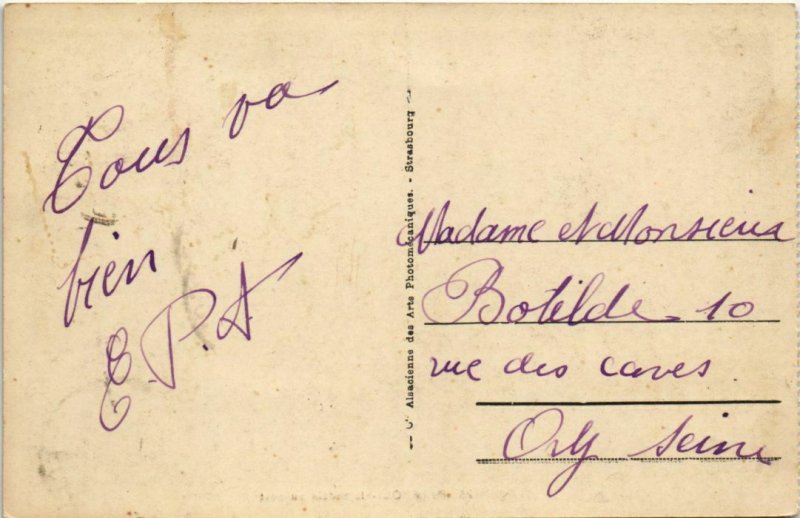 Tous va
bien
E.P.A
Cie Alsacienne des Arts Photomécaniques. - Strasbourg
Madame et Monsieur
Botilde - 10
rue des caves
Orly Seine